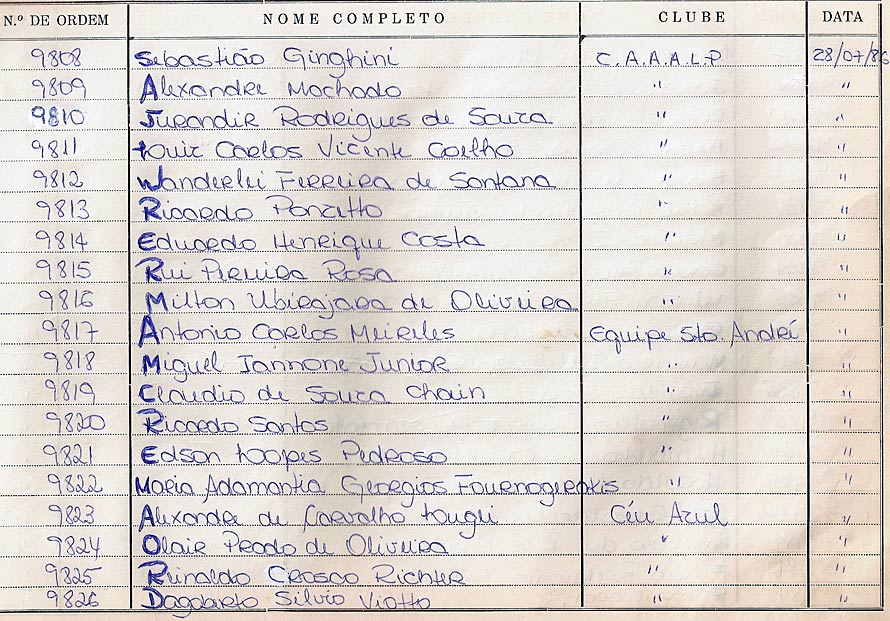 N.º DE ORDEM NOME COMPLETO CLUBE DATA
9808 Sebastião Ginghini C.A.A.A.L.P 28/07/86
9809 Alexandre Machado " "
9810 Jurandir Rodrigues de Souza " "
9811 Luiz Carlos Vicente Coelho " "
9812 Wanderlei Ferreira de Santana " "
9813 Ricardo Ponzetto " "
9814 Eduardo Henrique Costa " "
9815 Rui Pereira Rosa " "
9816 Milton Ubirajara de Oliveira " "
9817 Antonio Carlos Meireles Equipe Sto. André "
9818 Miguel Iannone Junior " "
9819 Claudio de Souza Chain " "
9820 Ricardo Santos " "
9821 Edson Loopes Pedroso " "
9822 Maria Adamantia Georgios Fournogerakis " "
9823 Alexandre de Carvalho Lougui Céu Azul "
9824 Olair Prado de Oliveira " "
9825 Reinaldo Crosco Richter " "
9826 Dagoberto Silvio Viotto " "